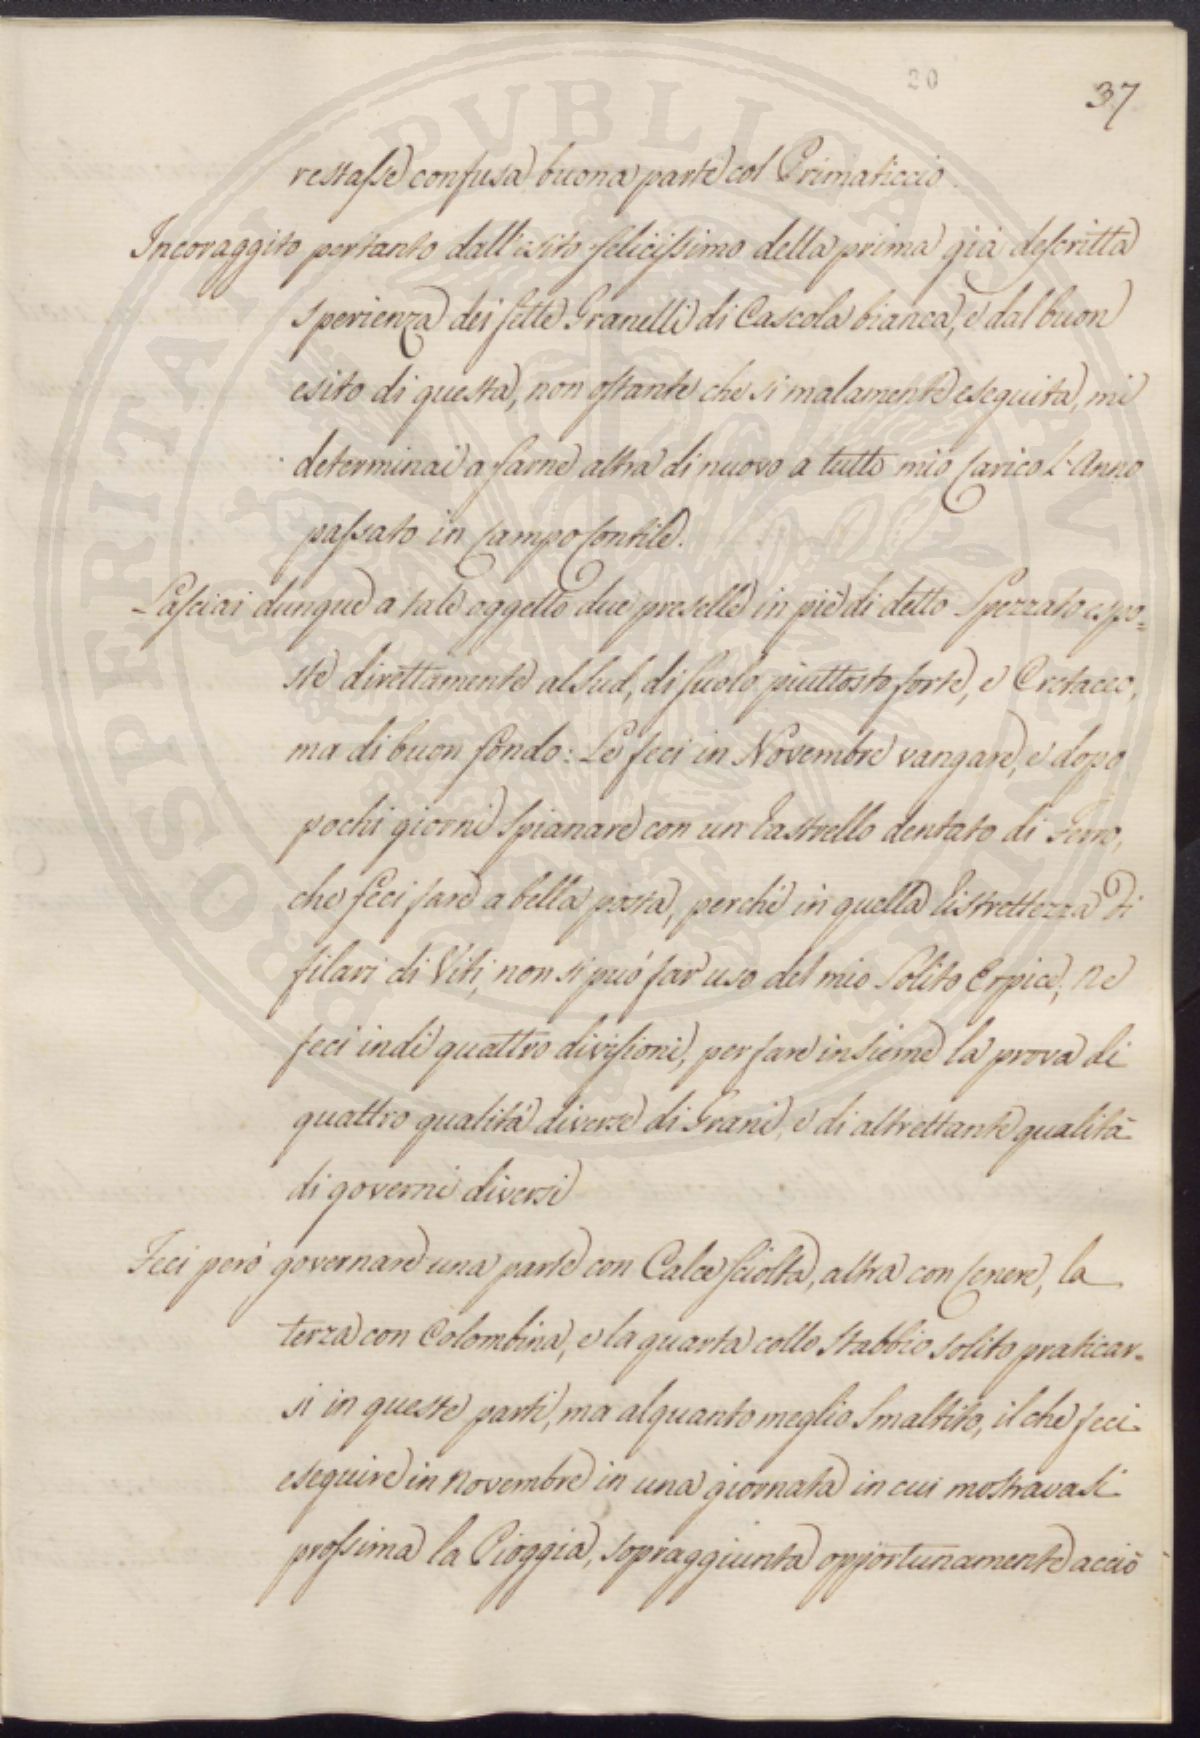 20
37
restasse confusa buona parte col Primaticcio.
Incoraggito pertanto dall'esito felicissimo della prima già descritta
sperienza dei sette Granelli di Cascola bianca, e dal buon
esito di questa, non ostante che si malamente eseguita, mi
determinai a farne altra di nuovo a tutto mio Carico l'Anno
passato in Campo Contile.
Lasciai dunque a tale oggetto due preselle in piè di detto Spezzato espo=
ste direttamente al Sud, di suolo piuttosto forte, e Cretaceo,
ma di buon fondo: Le feci in Novembre vangare, e dopo
pochi giorni spianare con un Rastrello dentato di Ferro,
che feci fare a bella posta, perchè in quella Ristrettezza di
filari di Viti, non si può far uso del mio Solito Erpice; Ne
feci indi quattro divisioni, per fare insieme la prova di
quattro qualità diverse di Grani, e di altrettante qualità
di governi diversi
Feci però governare una parte con Calce sciolta, altra con Cenere, la
terza con Colombina, e la quarta collo Stabbio solito praticar=
si in queste parti, ma alquanto meglio Smaltito, il che feci
eseguire in Novembre in una giornata in cui mostravasi
prossima la Pioggia, sopraggiunta opportunamente acciò
PROSPERITATI PUBLICAE AUGENDAE